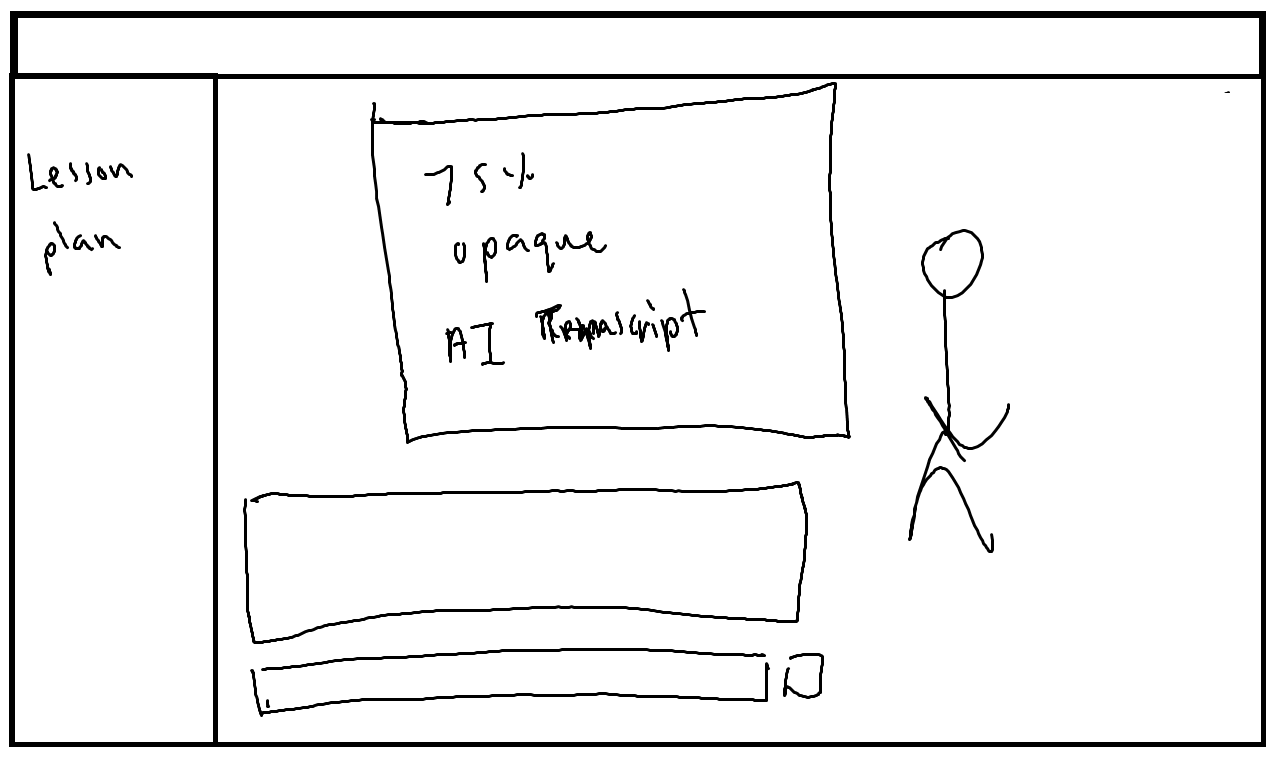 Lesson
plan
75%
opaque
AI Transcript